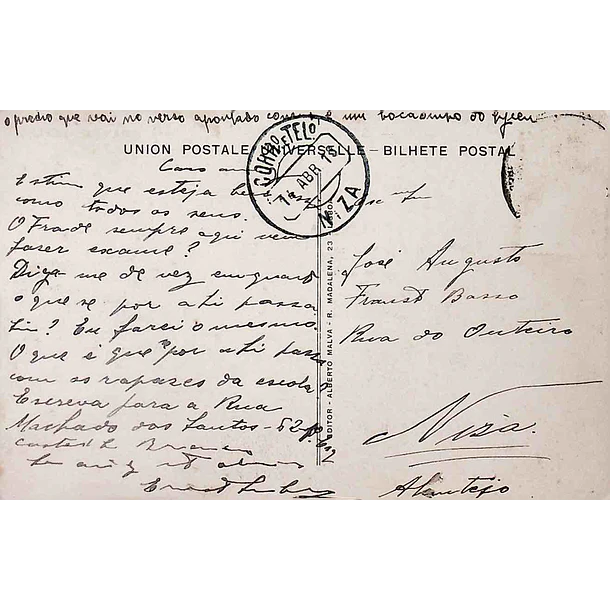 o predio que vai no verso apontado com + é um bocadinho do lyceu
UNION POSTALE UNIVERSELLE - BILHETE POSTAL
CORRO E TELO
14 ABR 1
NIZA
Caro
que esteja
como todos os seus.
O Frade sempre aqui vem
fazer exame?
Diga-me de vez em quando
o que se por ahi passa
Eu farei o mesmo.
O que é que por ahi passa
com os rapazes da escola
Escreva para a Rua
Machado dos Santos - 52
Castello Branco
EDITOR - ALBERTO MALVA - R. MADALENA, 23 - LISBOA
José Augusto
Fraust Basso
Rua do Outeiro
Niza
Alemtejo